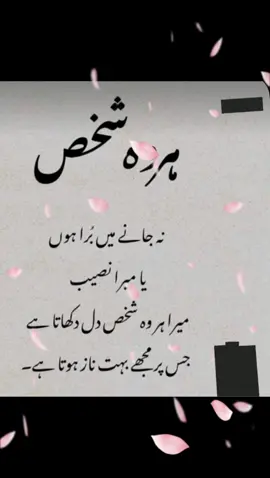 ہر وہ شخص
نہ جانے میں بُرا ہوں
یا میرا نصیب
میرا ہر وہ شخص دل دکھاتا ہے
جس پر مجھے بہت ناز ہوتا ہے۔